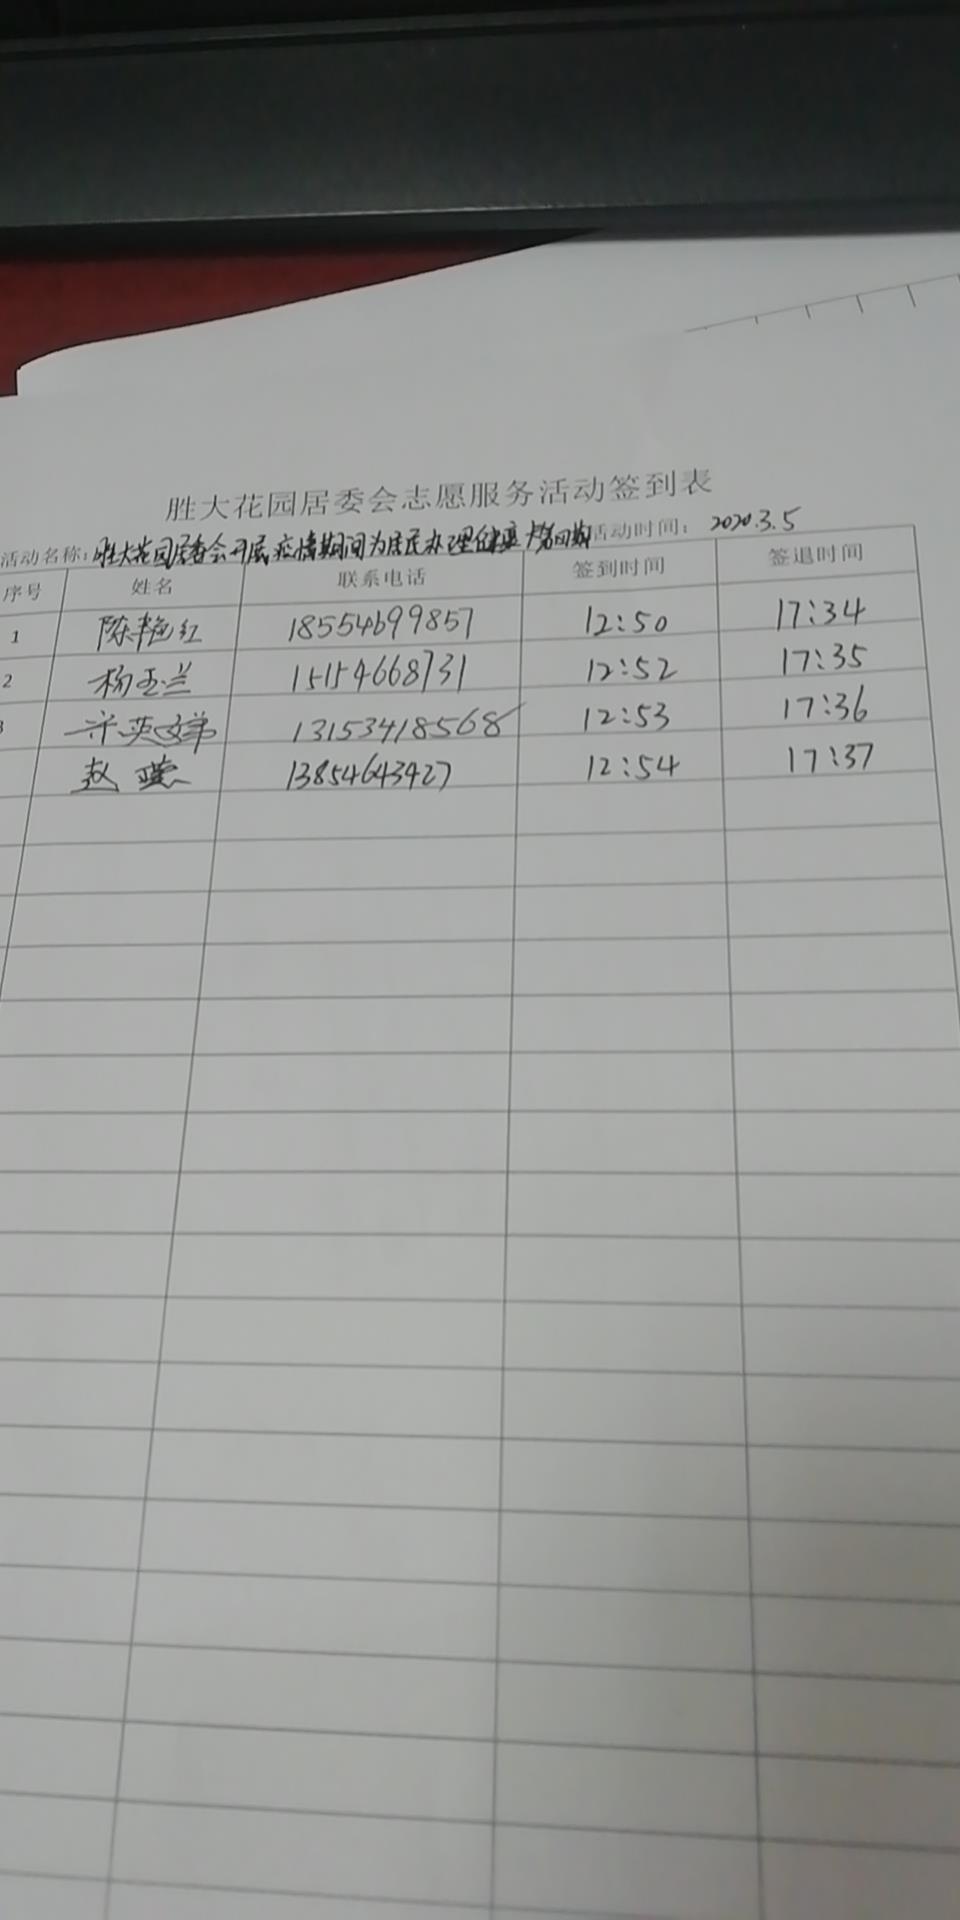 胜大花园居委会志愿服务活动签到表
活动名称: 胜大花园居委会开展疫情期间为居民办理健康卡第四期 活动时间: 2020.3.5
序号 姓名 联系电话 签到时间 签退时间
1 陈艳红 18554699857 12:50 17:34
2 杨玉兰 15154668731 12:52 17:35
3 英娣 13153418568 12:53 17:36
赵 13854643427 12:54 17:37